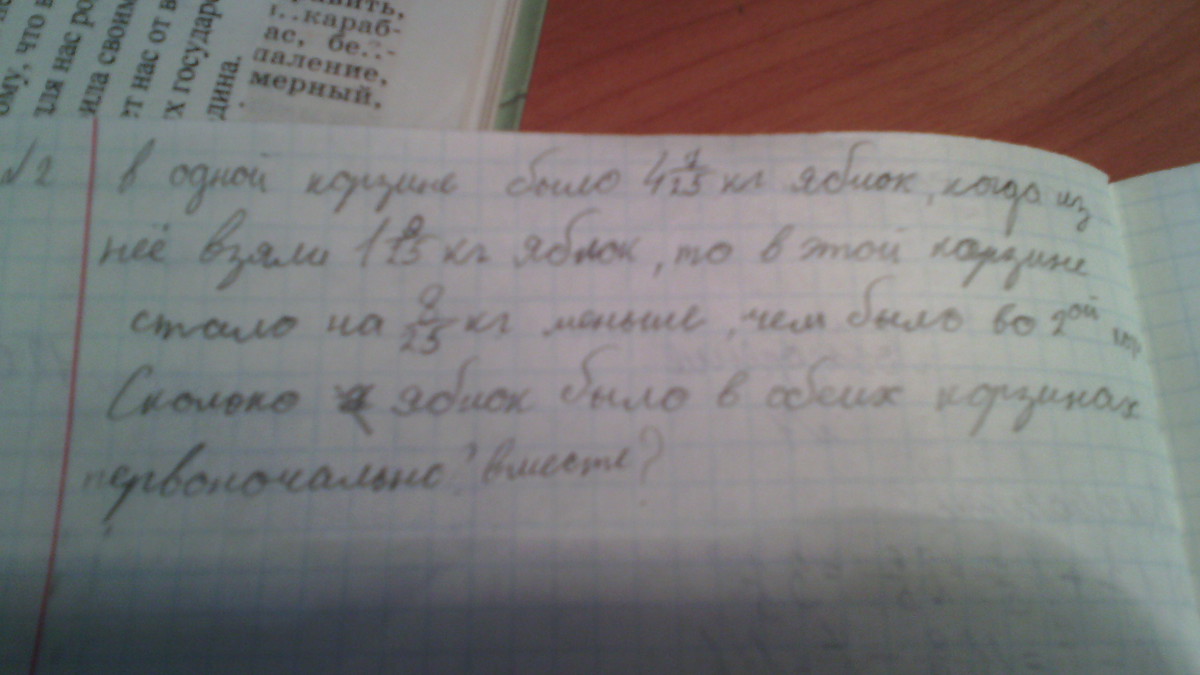 ому, что в
для нас ро
ила своим
ет нас от в
х государс
дина.
равить,
караб-
ас, бе...-
паление,
мерный,
№2 В одной корзине было 4 кг яблок, когда из
неё взяли 1 кг яблок, то в этой корзине
стало на 9/25 кг меньше, чем было во 2ой кор.
Сколько яблок было в обеих корзинах
первоночально? вместе?